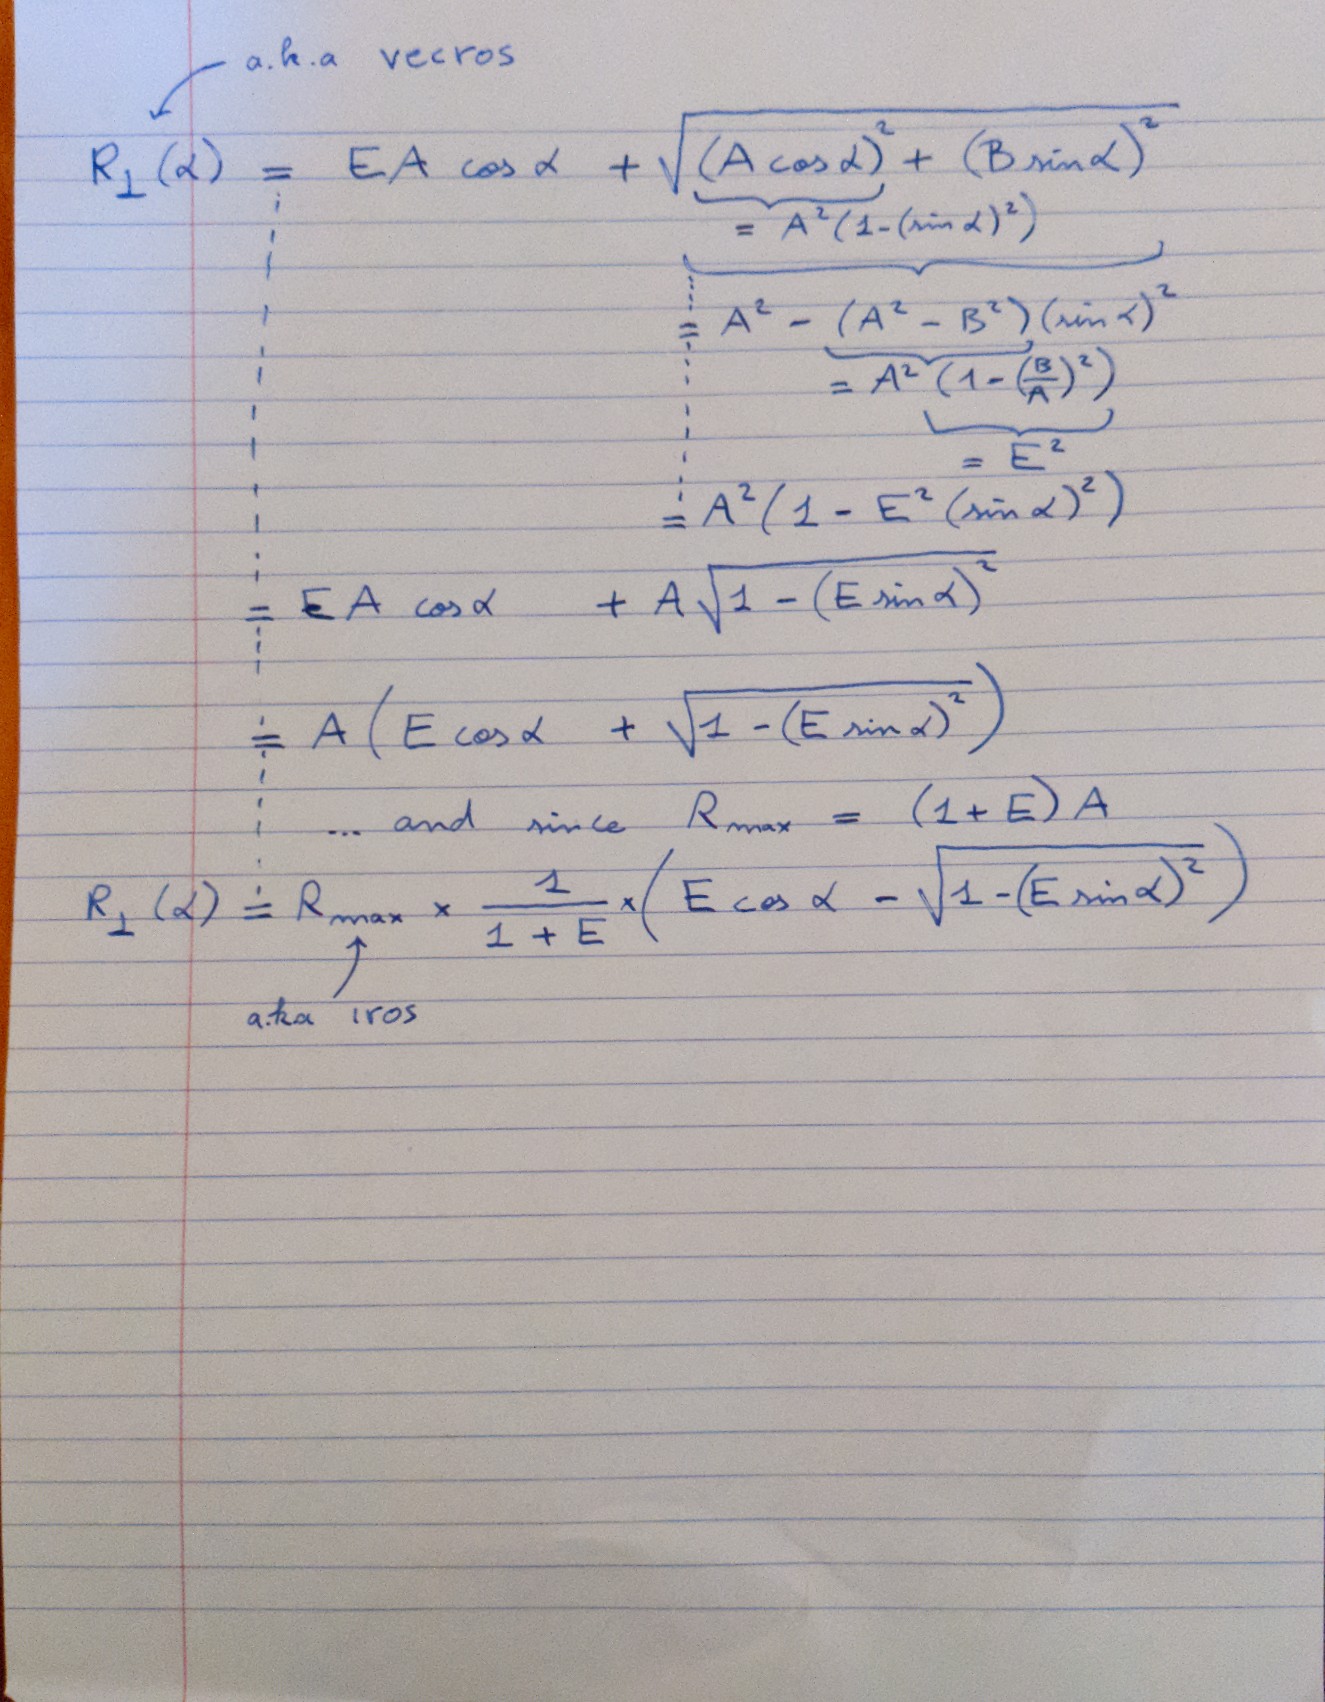 a.k.a vecros
R₁(α) = EA cos α + √((A cos α)² + (B sin α)²)
= A²(1-(sin α)²)
= A² - (A² - B²)(sin α)²
= A²(1-(B/A)²)
= E²
= A²(1 - E²(sin α)²)
= EA cos α + A√(1 - (E sin α)²)
= A(E cos α + √(1 - (E sin α)²))
... and since Rmax = (1+E)A
R₁(α) = Rmax × 1/(1+E) × (E cos α - √(1-(E sin α)²))
a.k.a iros